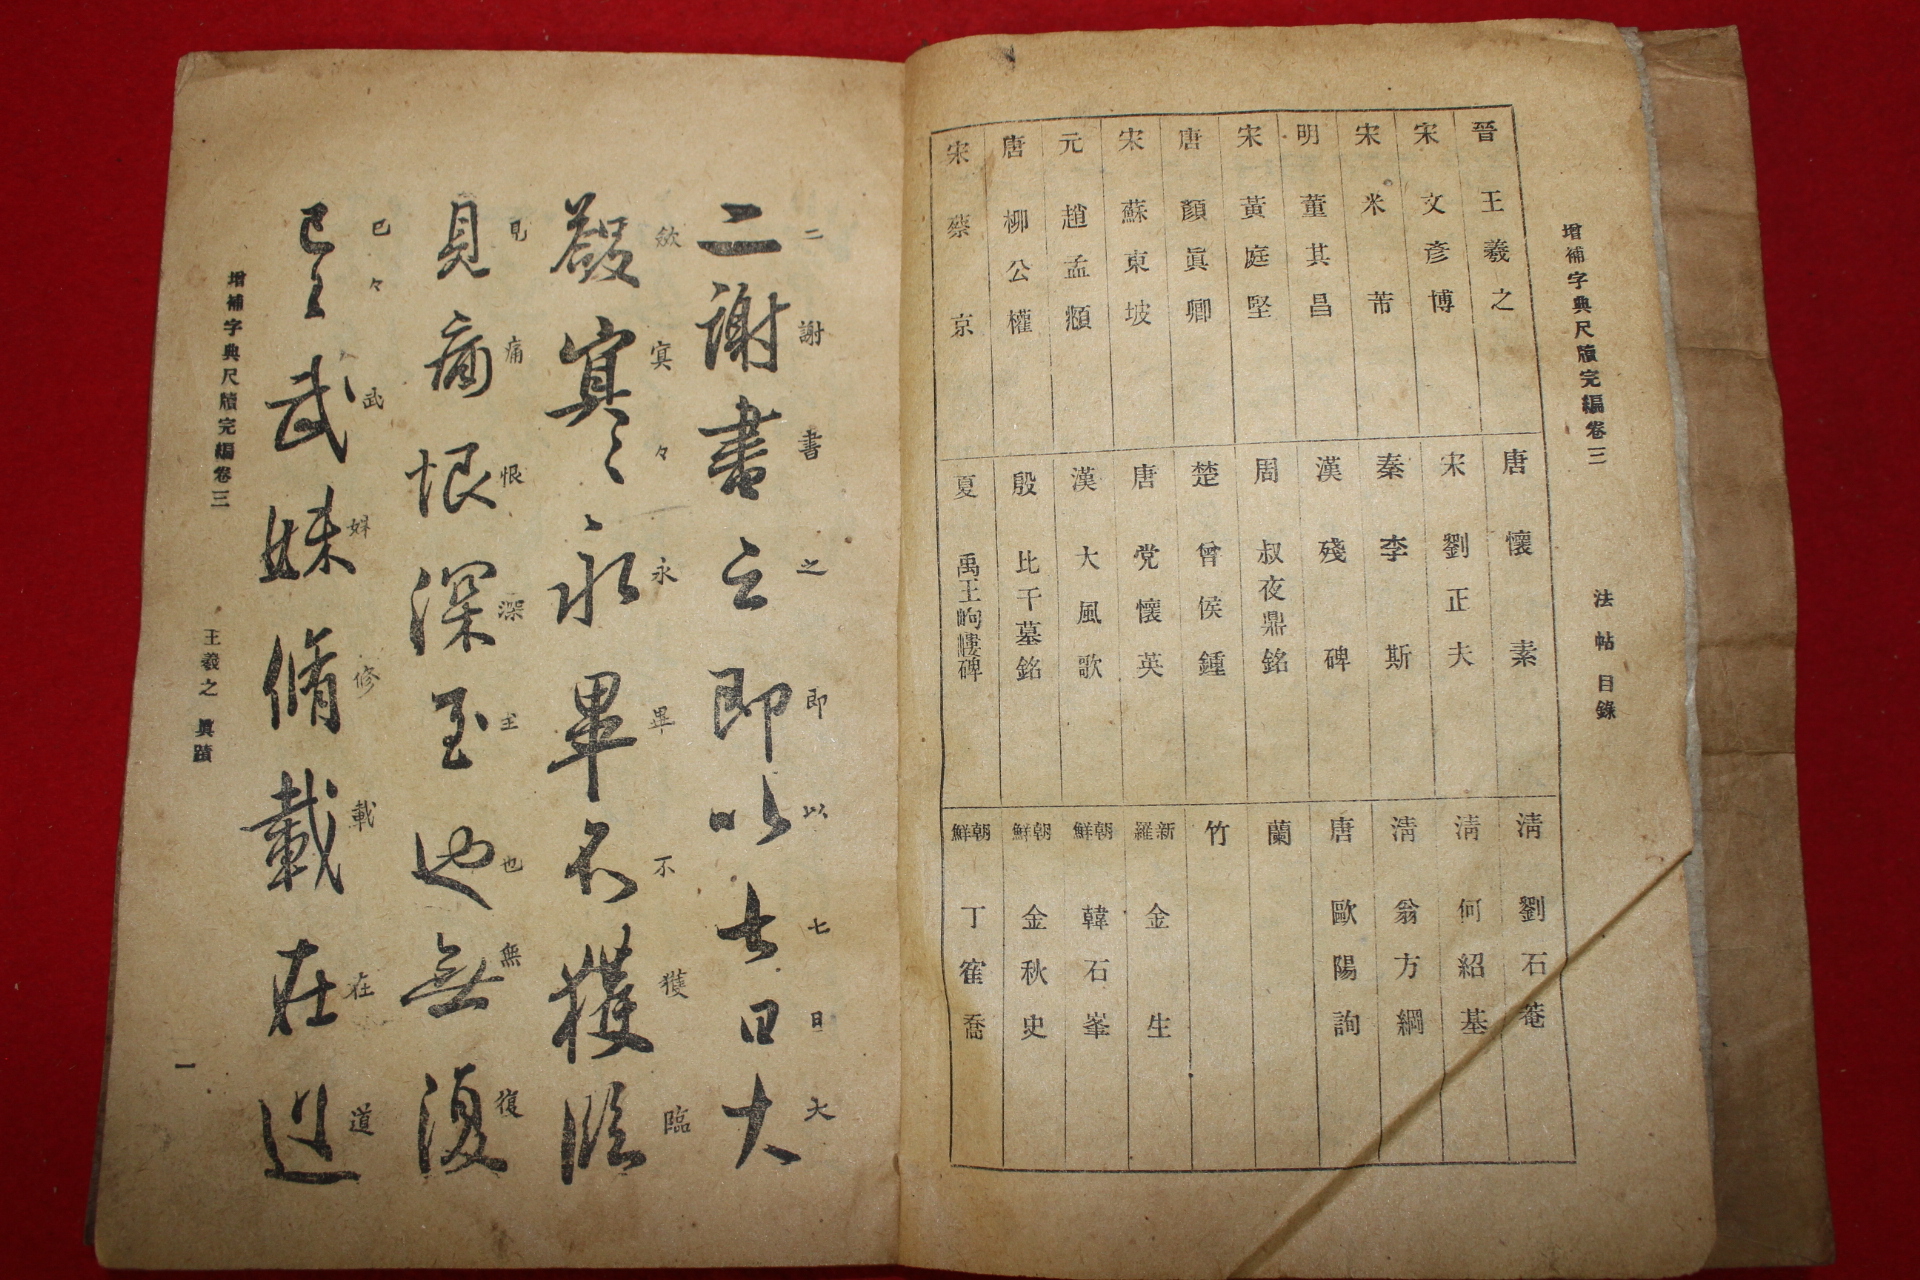 增補字典尺牘完編卷三 法帖目錄
晉 王羲之
宋 文彦博
宋 米芾
明 董其昌
宋 黃庭堅
唐 顏眞卿
宋 蘇東坡
元 趙孟頫
唐 柳公權
宋 蔡京
唐 懷素
宋 劉正夫
秦 李斯
漢 殘碑
周 叔夜鼎銘
楚 曾侯鍾
唐 党懷英
漢 大風歌
殷 比干墓銘
夏 禹王岣嶁碑
淸 劉石菴
淸 何紹基
淸 翁方綱
唐 歐陽詢
蘭
竹
新羅 金生
朝鮮 韓石峯
朝鮮 金秋史
朝鮮 丁寉喬
二謝書之即以七日大
二謝書之即以七日大
斂冥々永畢不獲臨
歛冥々永畢不獲臨
見痛恨深至也無復
見痛恨深至也無復
已々武妹修載在道
已々武妹脩載在道
增補字典尺牘完編卷三 王羲之 眞蹟 一